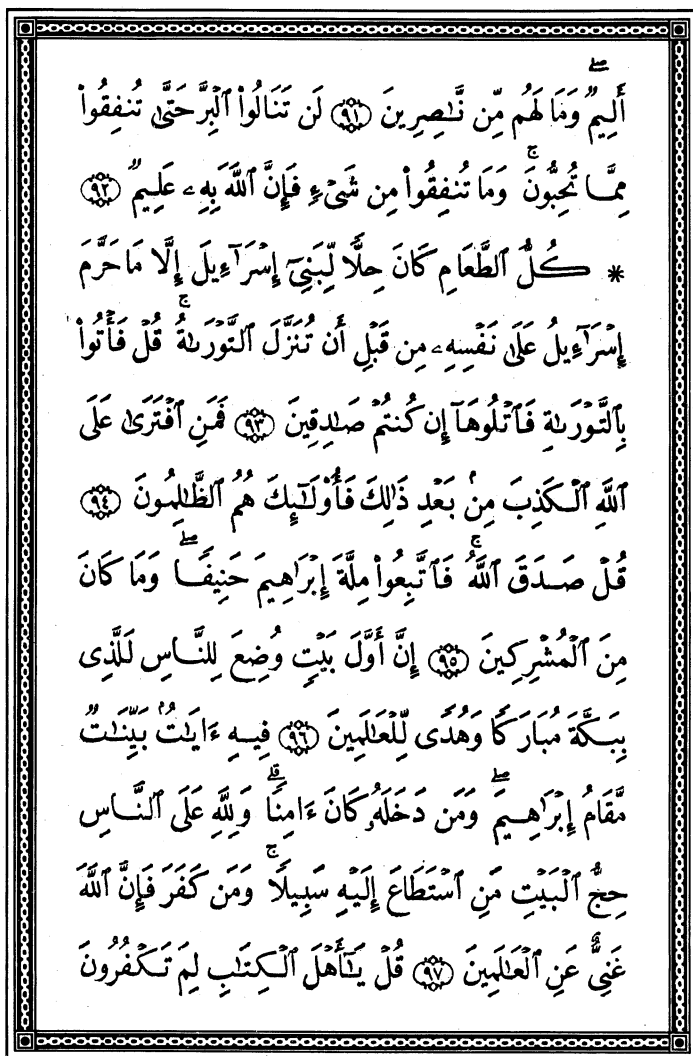 أَلِيمٌۖ وَمَا لَهُم مِّن نَّـٰصِرِينَ ﴿٩١﴾ لَن تَنَالُوا۟ ٱلْبِرَّ حَتَّىٰ تُنفِقُوا۟
مِمَّا تُحِبُّونَۚ وَمَا تُنفِقُوا۟ مِن شَىْءٍ فَإِنَّ ٱللَّهَ بِهِۦ عَلِيمٌ ﴿٩٢﴾
* كُلُّ ٱلطَّعَامِ كَانَ حِلًّا لِّبَنِىٓ إِسْرَٰٓءِيلَ إِلَّا مَا حَرَّمَ
إِسْرَٰٓءِيلُ عَلَىٰ نَفْسِهِۦ مِن قَبْلِ أَن تُنَزَّلَ ٱلتَّوْرَىٰةُۚ قُلْ فَأْتُوا۟
بِٱلتَّوْرَىٰةِ فَٱتْلُوهَآ إِن كُنتُمْ صَـٰدِقِينَ ﴿٩٣﴾ فَمَنِ ٱفْتَرَىٰ عَلَى
ٱللَّهِ ٱلْكَذِبَ مِنۢ بَعْدِ ذَٰلِكَ فَأُو۟لَـٰٓئِكَ هُمُ ٱلظَّـٰلِمُونَ ﴿٩٤﴾
قُلْ صَدَقَ ٱللَّهُۚ فَٱتَّبِعُوا۟ مِلَّةَ إِبْرَٰهِيمَ حَنِيفًاۖ وَمَا كَانَ
مِنَ ٱلْمُشْرِكِينَ ﴿٩٥﴾ إِنَّ أَوَّلَ بَيْتٍ وُضِعَ لِلنَّاسِ لَلَّذِى
بِبَكَّةَ مُبَارَكًا وَهُدًى لِّلْعَـٰلَمِينَ ﴿٩٦﴾ فِيهِ ءَايَـٰتٌۢ بَيِّنَـٰتٌ
مَّقَامُ إِبْرَٰهِيمَۖ وَمَن دَخَلَهُۥ كَانَ ءَامِنًاۗ وَلِلَّهِ عَلَى ٱلنَّاسِ
حِجُّ ٱلْبَيْتِ مَنِ ٱسْتَطَاعَ إِلَيْهِ سَبِيلًاۚ وَمَن كَفَرَ فَإِنَّ ٱللَّهَ
غَنِىٌّ عَنِ ٱلْعَـٰلَمِينَ ﴿٩٧﴾ قُلْ يَـٰٓأَهْلَ ٱلْكِتَـٰبِ لِمَ تَكْفُرُونَ